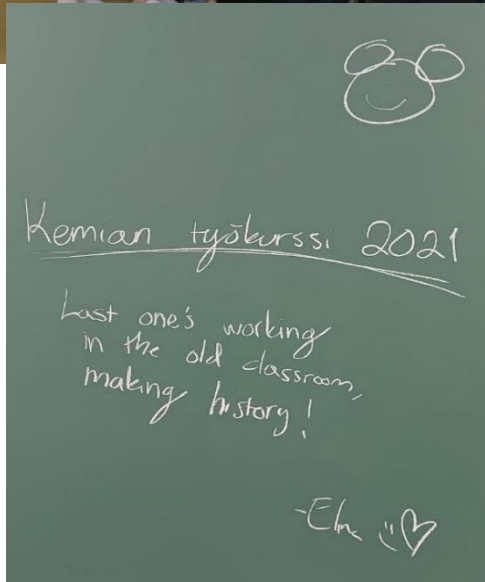 Kemian työkurssi 2021
Last one's working
in the old classroom,
making history!